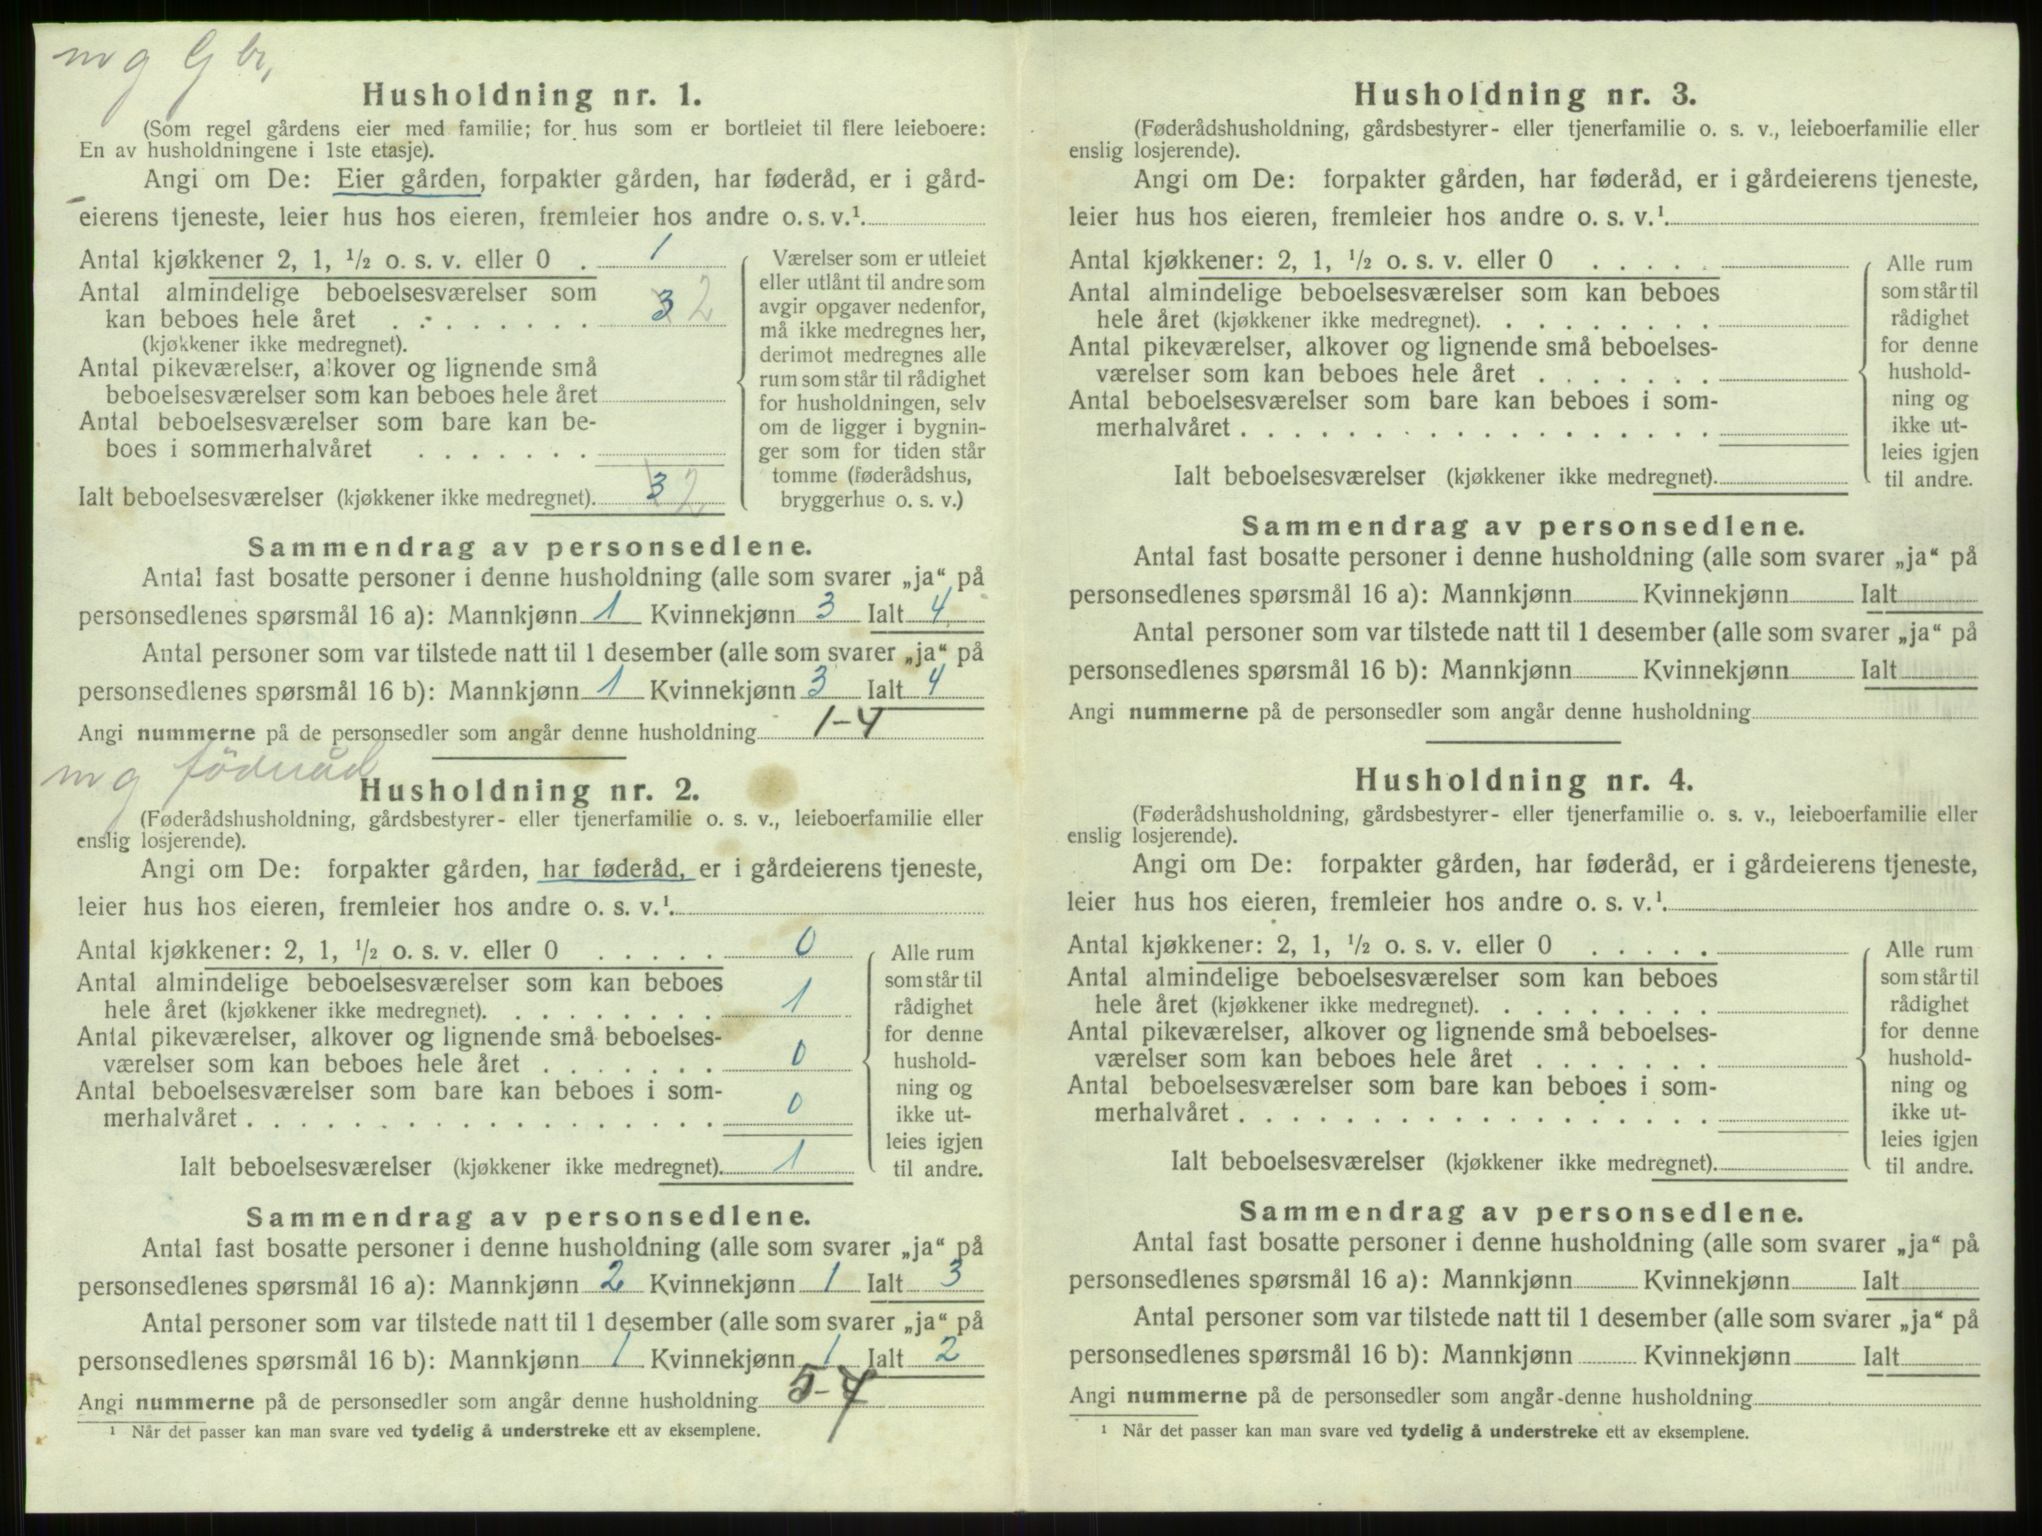 m g G br,
Husholdning nr. 1.
(Som regel gårdens eier med familie; for hus som er bortleiet til flere leieboere:
En av husholdningene i 1ste etasje).
Angi om De: Eier gården, forpakter gården, har føderåd, er i gård-
eierens tjeneste, leier hus hos eieren, fremleier hos andre o. s. v.¹.
Antal kjøkkener 2, 1, ½ o. s. v. eller 0 . 1
Antal almindelige beboelsesværelser som
kan beboes hele året . . . . . . . . 3 2
(kjøkkener ikke medregnet).
Antal pikeværelser, alkover og lignende små
beboelsesværelser som kan beboes hele året
Antal beboelsesværelser som bare kan be-
boes i sommerhalvåret . . . . . . .
Ialt beboelsesværelser (kjøkkener ikke medregnet). 3 2
Værelser som er utleiet
eller utlånt til andre som
avgir opgaver nedenfor,
må ikke medregnes her,
derimot medregnes alle
rum som står til rådighet
for husholdningen, selv
om de ligger i bygnin-
ger som for tiden står
tomme (føderådshus,
bryggerhus o. s. v.)
Sammendrag av personsedlene.
Antal fast bosatte personer i denne husholdning (alle som svarer „ja“ på
personsedlenes spørsmål 16 a): Mannkjønn 1 Kvinnekjønn 3 Ialt 4
Antal personer som var tilstede natt til 1 desember (alle som svarer „ja“ på
personsedlenes spørsmål 16 b): Mannkjønn 1 Kvinnekjønn 3 Ialt 4
Angi nummerne på de personsedler som angår denne husholdning 1-4
m g föderåd
Husholdning nr. 2.
(Føderådshusholdning, gårdsbestyrer- eller tjenerfamilie o. s. v., leieboerfamilie eller
enslig losjerende).
Angi om De: forpakter gården, har føderåd, er i gårdeierens tjeneste,
leier hus hos eieren, fremleier hos andre o. s. v.¹.
Antal kjøkkener: 2, 1, ½ o. s. v. eller 0 . . . . . 0
Antal almindelige beboelsesværelser som kan beboes
hele året (kjøkkener ikke medregnet). . . . . . . . . 1
Antal pikeværelser, alkover og lignende små beboelses-
værelser som kan beboes hele året . . . . . . . 0
Antal beboelsesværelser som bare kan beboes i som-
merhalvåret . . . . . . . . . . . . . . . . . . 0
Ialt beboelsesværelser (kjøkkener ikke medregnet). 1
Alle rum
som står til
rådighet
for denne
hushold-
ning og
ikke ut-
leies igjen
til andre.
Sammendrag av personsedlene.
Antal fast bosatte personer i denne husholdning (alle som svarer „ja“ på
personsedlenes spørsmål 16 a): Mannkjønn 2 Kvinnekjønn 1 Ialt 3
Antal personer som var tilstede natt til 1 desember (alle som svarer „ja“ på
personsedlenes spørsmål 16 b): Mannkjønn 1 Kvinnekjønn 1 Ialt 2
Angi nummerne på de personsedler som angår denne husholdning 5-7
¹ Når det passer kan man svare ved tydelig å understreke ett av eksemplene.
Husholdning nr. 3.
(Føderådshusholdning, gårdsbestyrer- eller tjenerfamilie o. s. v., leieboerfamilie eller
enslig losjerende).
Angi om De: forpakter gården, har føderåd, er i gårdeierens tjeneste,
leier hus hos eieren, fremleier hos andre o. s. v.¹.
Antal kjøkkener: 2, 1, ½ o. s. v. eller 0 . . . . .
Antal almindelige beboelsesværelser som kan beboes
hele året (kjøkkener ikke medregnet). . . . . . . . .
Antal pikeværelser, alkover og lignende små beboelses-
værelser som kan beboes hele året . . . . . . .
Antal beboelsesværelser som bare kan beboes i som-
merhalvåret . . . . . . . . . . . . . . . . . .
Ialt beboelsesværelser (kjøkkener ikke medregnet).
Alle rum
som står til
rådighet
for denne
hushold-
ning og
ikke ut-
leies igjen
til andre.
Sammendrag av personsedlene.
Antal fast bosatte personer i denne husholdning (alle som svarer „ja“ på
personsedlenes spørsmål 16 a): Mannkjønn Kvinnekjønn Ialt
Antal personer som var tilstede natt til 1 desember (alle som svarer „ja“ på
personsedlenes spørsmål 16 b): Mannkjønn Kvinnekjønn Ialt
Angi nummerne på de personsedler som angår denne husholdning
Husholdning nr. 4.
(Føderådshusholdning, gårdsbestyrer- eller tjenerfamilie o. s. v., leieboerfamilie eller
enslig losjerende).
Angi om De: forpakter gården, har føderåd, er i gårdeierens tjeneste,
leier hus hos eieren, fremleier hos andre o. s. v.¹.
Antal kjøkkener: 2, 1, ½ o. s. v. eller 0 . . . . .
Antal almindelige beboelsesværelser som kan beboes
hele året (kjøkkener ikke medregnet). . . . . . . . .
Antal pikeværelser, alkover og lignende små beboelses-
værelser som kan beboes hele året . . . . . . .
Antal beboelsesværelser som bare kan beboes i som-
merhalvåret . . . . . . . . . . . . . . . . . .
Ialt beboelsesværelser (kjøkkener ikke medregnet).
Alle rum
som står til
rådighet
for denne
hushold-
ning og
ikke ut-
leies igjen
til andre.
Sammendrag av personsedlene.
Antal fast bosatte personer i denne husholdning (alle som svarer „ja“ på
personsedlenes spørsmål 16 a): Mannkjønn Kvinnekjønn Ialt
Antal personer som var tilstede natt til 1 desember (alle som svarer „ja“ på
personsedlenes spørsmål 16 b): Mannkjønn Kvinnekjønn Ialt
Angi nummerne på de personsedler som angår denne husholdning
¹ Når det passer kan man svare ved tydelig å understreke ett av eksemplene.